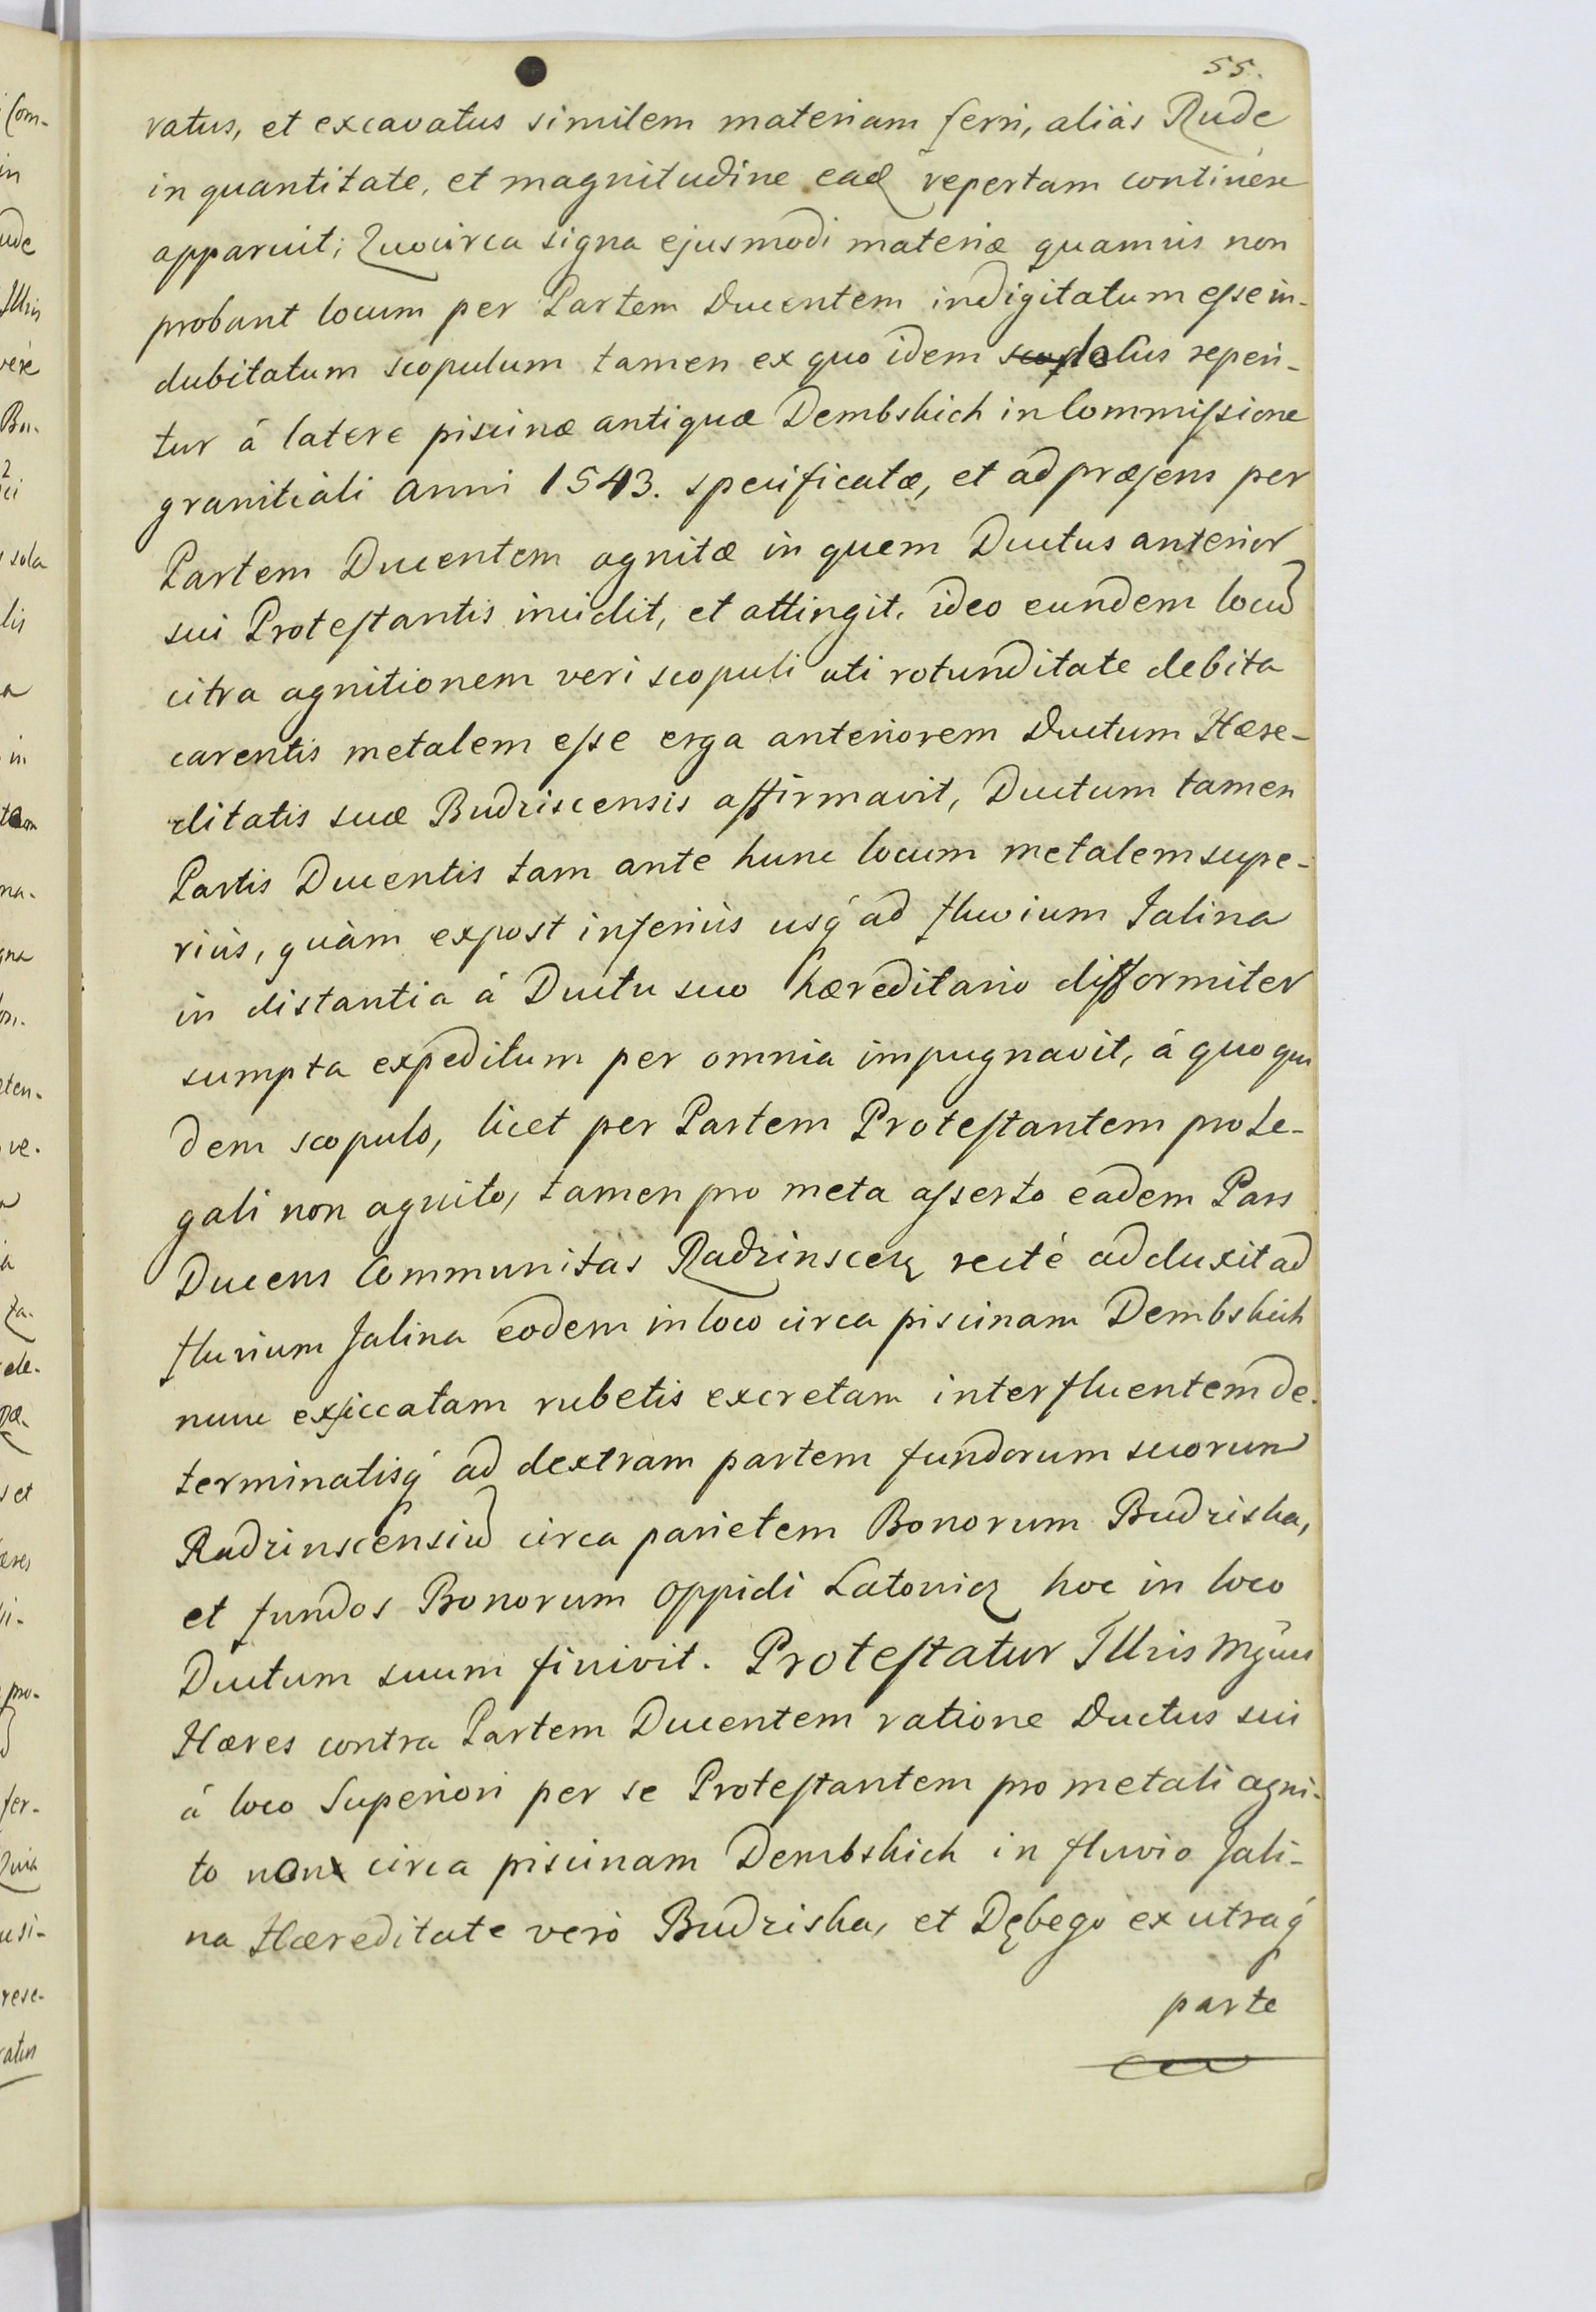 55.
vatus, et excavatus similem materiam ferri, aliàs Rude
in quantitate, et magnitudine eadē repertam continere
apparuit; Quocirca signa ejusmodi materiæ quamvis non
probant locum per Partem Ducentem indigitatum eſse in-
dubitatum scopulum tamen ex quo idem locus reperi-
tur á latere piscinæ antiquæ Dembskich in Commiſsione
granitiali anni 1543. specificatæ, et ad præſens per
Partem Ducentem agnitæ in quem Ductus anterior
sui Proteſtantis incidit, et attingit, ideo eundem locū
citra agnitionem veri scopuli uti rotunditate debita
carentis metalem eſse erga anteriorem Ductum Hære-
ditatis suæ Budziscensis affirmavit, Ductum tamen
Partis Ducentis tam ante hunc locum metalem supe-
riùs, quàm expost inferiùs usq́ ad fluvium Jalina
in distantia á Ductu suo hæreditario difformiter
sumpta expeditum per omnia impugnavit, á quo qui
dem scopulo, licet per Partem Proteſtantem pro Le-
gali non agnito, tamen pro meta aſserto eadem Pars
Ducens Communitas Radzinscen recté adduxit ad
fluvium Jalina eodem in loco circa piscinam Dembskich
nunc exſiccatam rubetis excretam interfluentem de-
terminatisq́ ad dextram partem fundorum suorum
Radzinscensiū circa parietem Bonorum Budziska,
et fundos Bonorum Oppidi Latowicz hoc in loco
Ductum suum finivit. Proteſtatur Jllris Mgñus
Hæres contra Partem Ducentem ratione Ductus sui
á loco Superiori per se Proteſtantem pro metali agni-
to non circa piscinam Dembskich in fluvio Jali-
na Hæreditate verò Budziska, et Dębego ex utraq́
parte